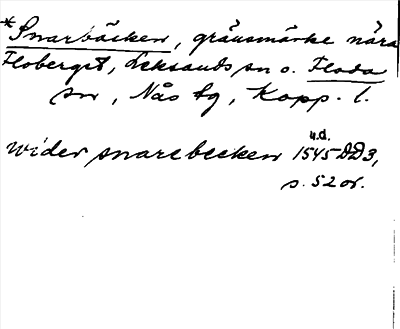 *Snarbäcken, gränsmärke nära
Floberget, Leksands sn o. Floda
sn, Nås tg, Kopp. l.
u.d.
wider snarebecken 1545 DD3,
s. 52 or.